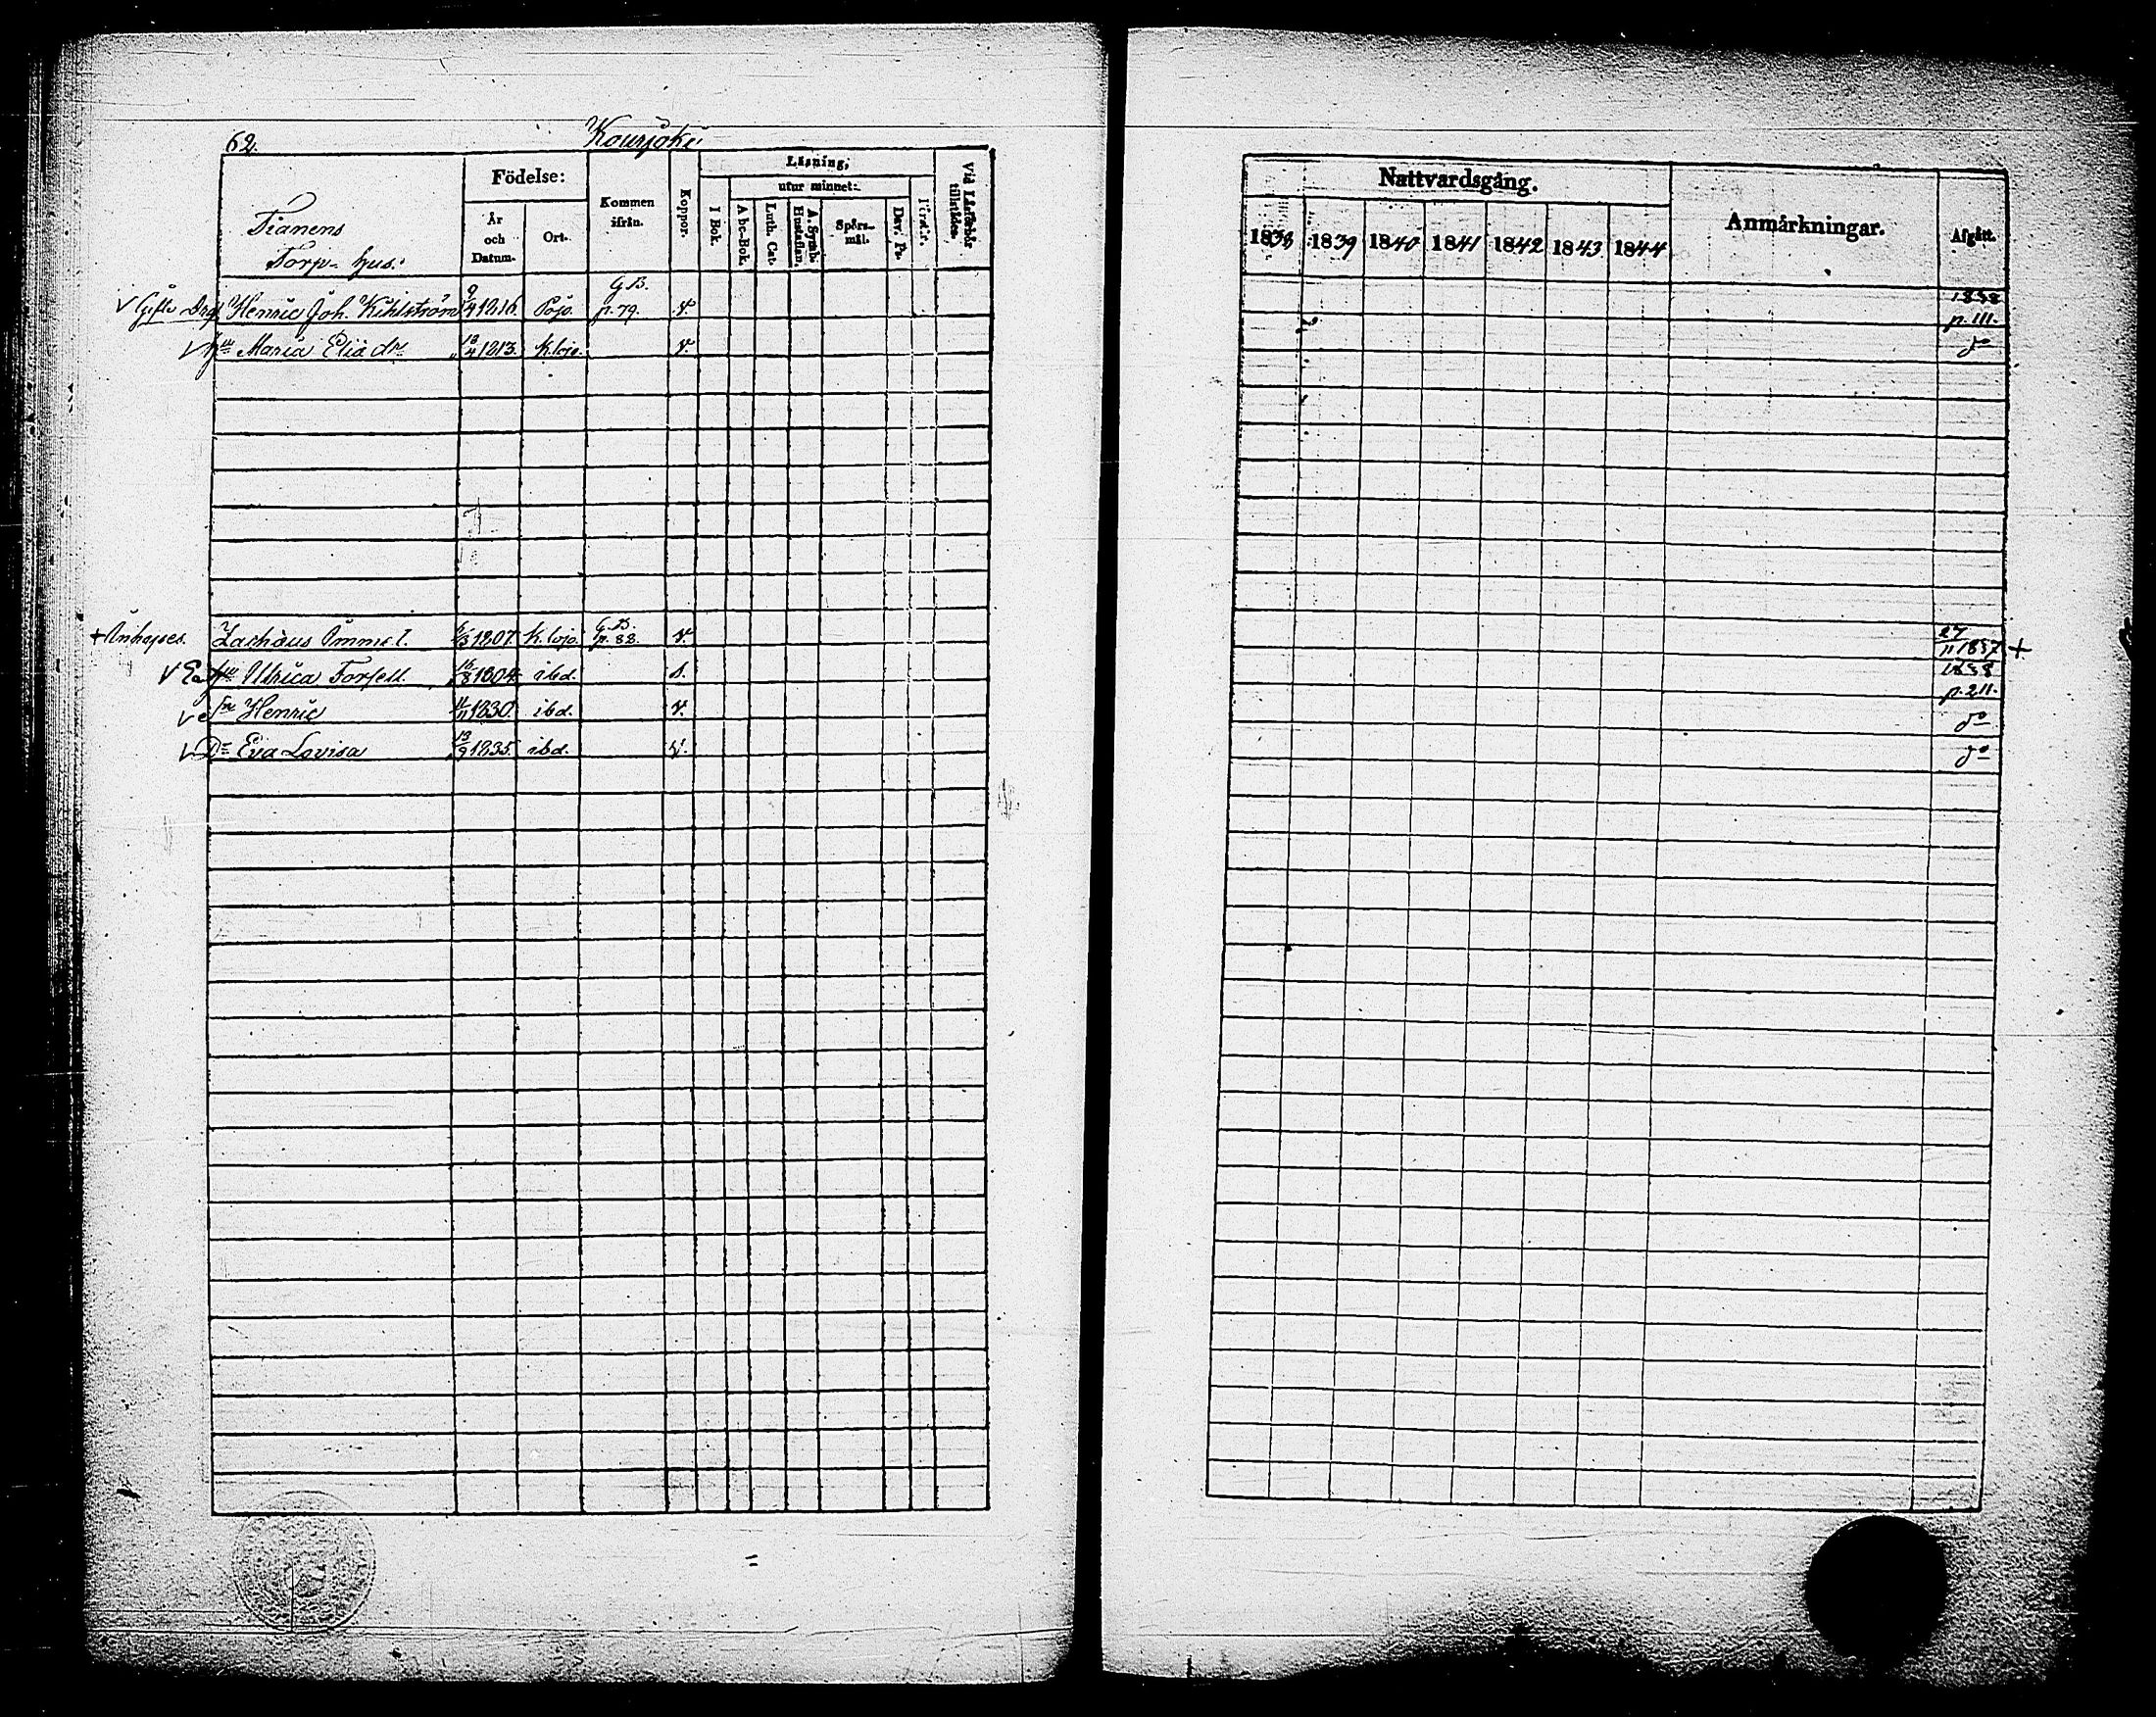 62.
Kourjoki
Födelse:
Läsning,
utur minnet:
Kommen ifrån.
Koppor.
I Bok.
A bc-Bok.
Luth. Cat.
A. Symb. Hustaflan.
Spörs-mål.
Dav. Ps.
Först:r.
Vid Läsförhör tillstädes.
År och Datum.
Ort.
Tianens
Torp-hus.
G.B.
V Gifte Drg. Henric Joh. Kihlström 9/4 1816. Pojo. p. 79. v.
V hu Maria Eliädr 13/4 1813. K.lojo. v.
G.B.
+ Inhyses. Zachäus Ömmel. 6/3 1807. K.lojo. p. 82. v.
V Ea hu Ulrica Forsell 16/8 1804. ibd. s.
V e sn Henric 11/11 1830. ibd. v.
V Dr Eva Lovisa 13/9 1835. ibd. v.
Nattvardsgång.
Anmärkningar.
Afgått.
1838 1839 1840 1841 1842 1843 1844
1838
p. 111.
do
27/11 1837 +
1838
p. 211.
do
do